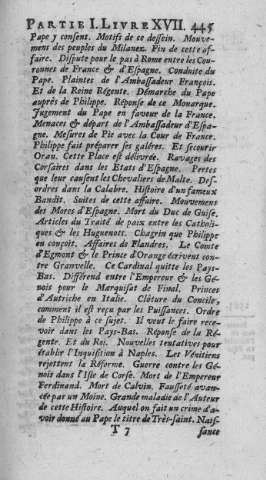 PARTIE I. LIVRE XVII. 445
Pape y consent. Motifs de ce dessein. Mouve-
mens des peuples du Milanez. Fin de cette af-
faire. Dispute pour le pas à Rome entre les Cou-
ronnes de France & d'Espagne. Conduite du
Pape. Plaintes de l'Ambassadeur François.
Et de la Reine Régente. Démarche du Pape
auprès de Philippe. Réponse de ce Monarque.
Jugement du Pape en faveur de la France.
Menaces & départ de l'Ambassadeur d'Espa-
gne. Mesures de Pie avec la Cour de France.
Philippe fait préparer ses galéres. Et secourir
Oran. Cette Place est délivrée. Ravages des
Corsaires dans les Etats d'Espagne. Pertes
que leur causent les Chevaliers de Malte. Des-
ordres dans la Calabre. Histoire d'un fameux
Bandit. Suites de cette affaire. Mouvemens
des Mores d'Espagne. Mort du Duc de Guise.
Articles du Traité de paix entre les Catholi-
ques & les Huguenots. Chagrin que Philippe
en conçoit. Affaires de Flandres. Le Comte
d'Egmont & le Prince d'Orange écrivent con-
tre Granvelle. Ce Cardinal quitte les Pays-
Bas. Différend entre l'Empereur & les Gé-
nois pour le Marquisat de Final. Princes
d'Autriche en Italie. Clôture du Concile,
comment il est reçu par les Puissances. Ordre
de Philippe à ce sujet. Il veut le faire rece-
voir dans les Pays-Bas. Réponse de la Ré-
gente. Et du Roi. Nouvelles tentatives pour
établir l'Inquisition à Naples. Les Vénitiens
rejettent la Réforme. Guerre contre les Gé-
nois dans l'Isle de Corse. Mort de l'Empereur
Ferdinand. Mort de Calvin. Fausseté avan-
cée par un Moine. Grande maladie de l'Auteur
de cette Histoire. Auquel on fait un crime d'a-
voir donné au Pape le titre de Très-saint. Nais-
T 7 sance